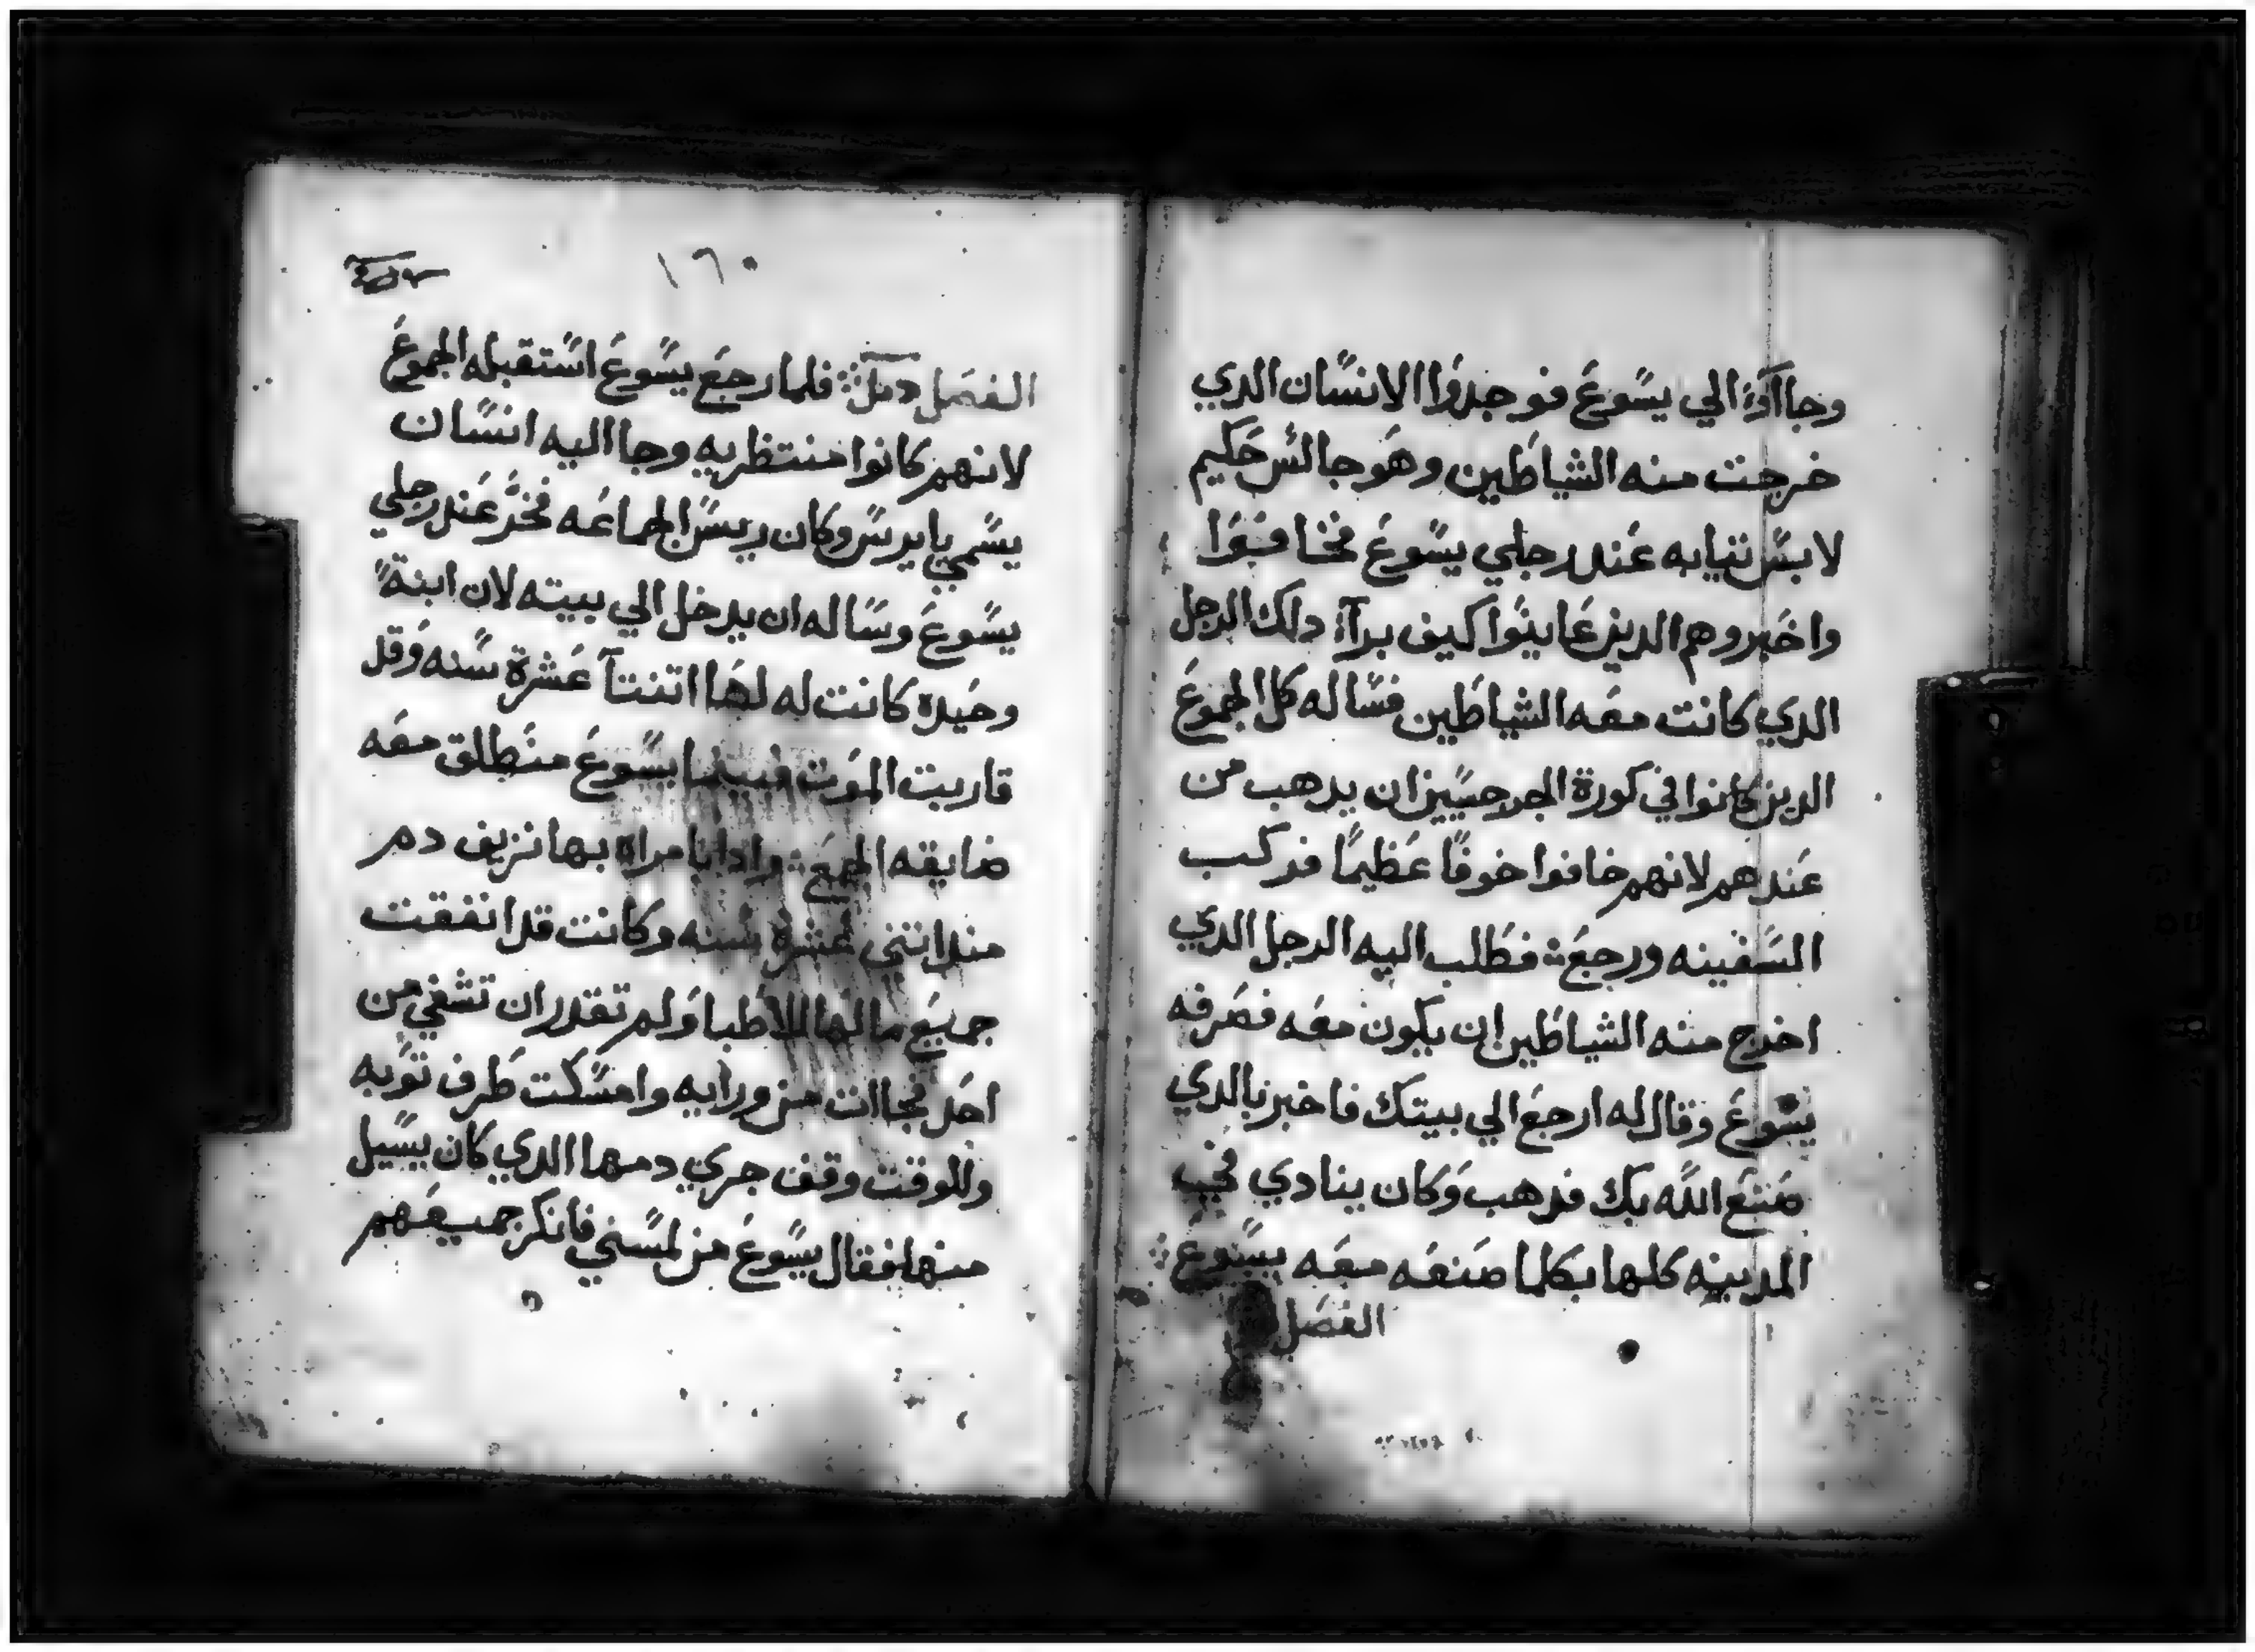 وجااوا الي يسوع فوجدوا الانسان الدي
خرجت منه الشياطين وهو جالس حكيم
لابس تيابه عند رجلي يسوع فخافوا
واخبروهم الدين عاينوا كيف برآء دلك الرجل
الدي كانت معه الشياطين فساله كل الجموع
الدين كانوا في كورة الجرجسيين ان يدهب من
عندهم لانهم خافوا خوفا عظيما فركب
السفينه ورجع ፨ فطلب اليه الرجل الدي
اخرج منه الشياطين ان يكون معه فصرفه
يسوع وقال له ارجع الي بيتك فاخبر بالدي
صنع الله بك فدهب وكان ينادي في
المدينه كلها بكلما صنعه معه يسوع ፨
الفصل
١٦٠
الفصل فلما رجع يسوع استقبله الجموع
لانهم كانوا منتظريه وجا اليه انسان
يسمي يايرس وكان ريس الجماعه فخر عند رجلي
يسوع وساله ان يدخل الي بيته لان ابنة
وحيده كانت له لها اتنتآ عشرة سنه وقد
قاربت الموت فبينما يسوع منطلق معه
ضايقه الجمع ፨ وادا بامراه بها نزيف دم
مند اتني عشره سنه وكانت قد انفقت
جميع مالها للاطبا ولم تقدر ان تشفي من
احد فجاات من ورايه وامسكت طرف توبه
وللوقت وقف جري دمها الدي كان يسيل
منها فقال يسوع من لمسني فانكر جميعهم